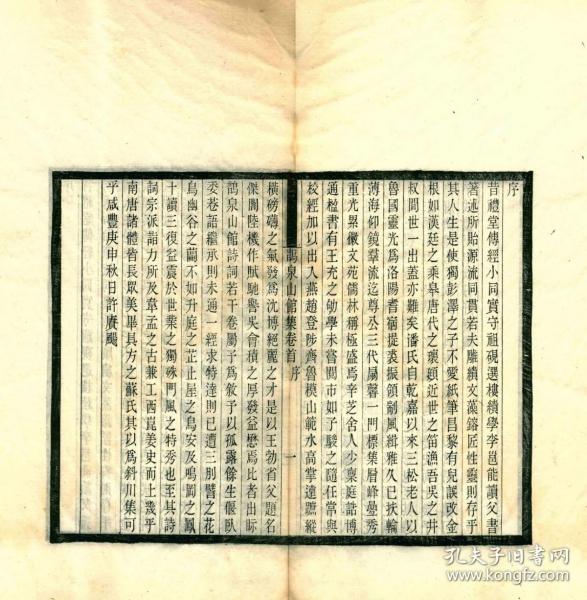 序
昔禮堂傳經小同實守祖硯選樓績學李邕能讀父書
著述所貽源流同貫若夫雕繢文藻鎔匠性靈則存乎
其人生是使獨彭澤之子不愛紙筆昌黎有兒誤改金
根如漢廷之乘皋唐代之瓌頲近世之笛漁吾吳之井
叔閒世一出蓋亦難矣潘氏自乾嘉以來三松老人以
魯國靈光為洛陽耆宿提裘振領耐風緝雅久已扶輪
薄海仰鏡羣流迄尊公三代扇馨一門標集層峰曡秀
重光累徽文苑儒林稱極盛焉辛芝舍人少稟庭誥博
通楹書有王充之幼學未嘗閱市如子駿之隨任常與
校經加以出入燕趙登陟齊魯模山範水高掌遠蹠縱
鸖泉山館集卷首
序
一
橫磅礴之氣發為沈博絕麗之才是以王勃省父題名
傑閣陸機作賦馳譽吳會積之厚發益懋焉比者出眎
鸖泉山館詩詞若干卷屬予為敘予以孤露餘生偃臥
委巷語繼承則未通一經求特達則已遭三刖譬之花
鳥幽谷之蘭不如升庭之芷止屋之烏安及鳴岡之鳳
十讀三復益震於世業之獨殊門風之特秀也至其詩
詞宗派詣力所及韋孟之古兼工西崑美史而上幾乎
南唐諸體皆長眾美畢具方之蘇氏其以為斜川集可
乎咸豐庚申秋日許賡颺
孔夫子旧书网
book.kongfz.com